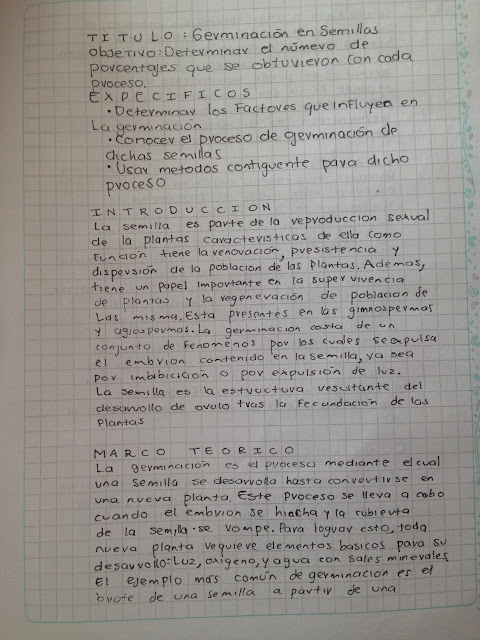 TITULO: Germinación en Semillas
Objetivo: Determinar el número de
porcentajes que se obtuvieron con cada
proceso.
EXPECIFICOS
• Determinar los Factores que influyen en
La germinación
• Conocer el proceso de germinación de
dichas semillas
• Usar metodos contiguente para dicho
proceso
INTRODUCCION
La semilla es parte de la reproduccion sexual
de la plantas caracteristicas de ella como
Funcion tiene la renovación, presistencia y
dispersión de la poblacion de las plantas. Ademas,
tiene un papel importante en la super vivencia
de plantas y la regeneración de poblacion de
Las misma. Esta presentes en las gimnospermas
y agiospermas. La germinacion costa de un
conjunto de Fenomenos por los cuales se expulsa
el embrion contenido en la semilla, ya sea
por imbibicición o por expulsión de luz.
La semilla es la estructura resultante del
desarrollo de ovolo tras la Fecundación de las
Plantas
MARCO TEORICO
La germinación es el proceso mediante el cual
una semilla se desarrolla hasta convertirse en
una nueva planta. Este proceso se lleva a cabo
cuando el embrion se hincha y la cubierta
de la semilla se rompe. Para lograr esto, toda
nueva planta requiere elementos basicos para su
desarrollo: Luz, oxigeno, y agua con sales minerales
El ejemplo mas común de germinacion es el
brote de una semilla a partir de una